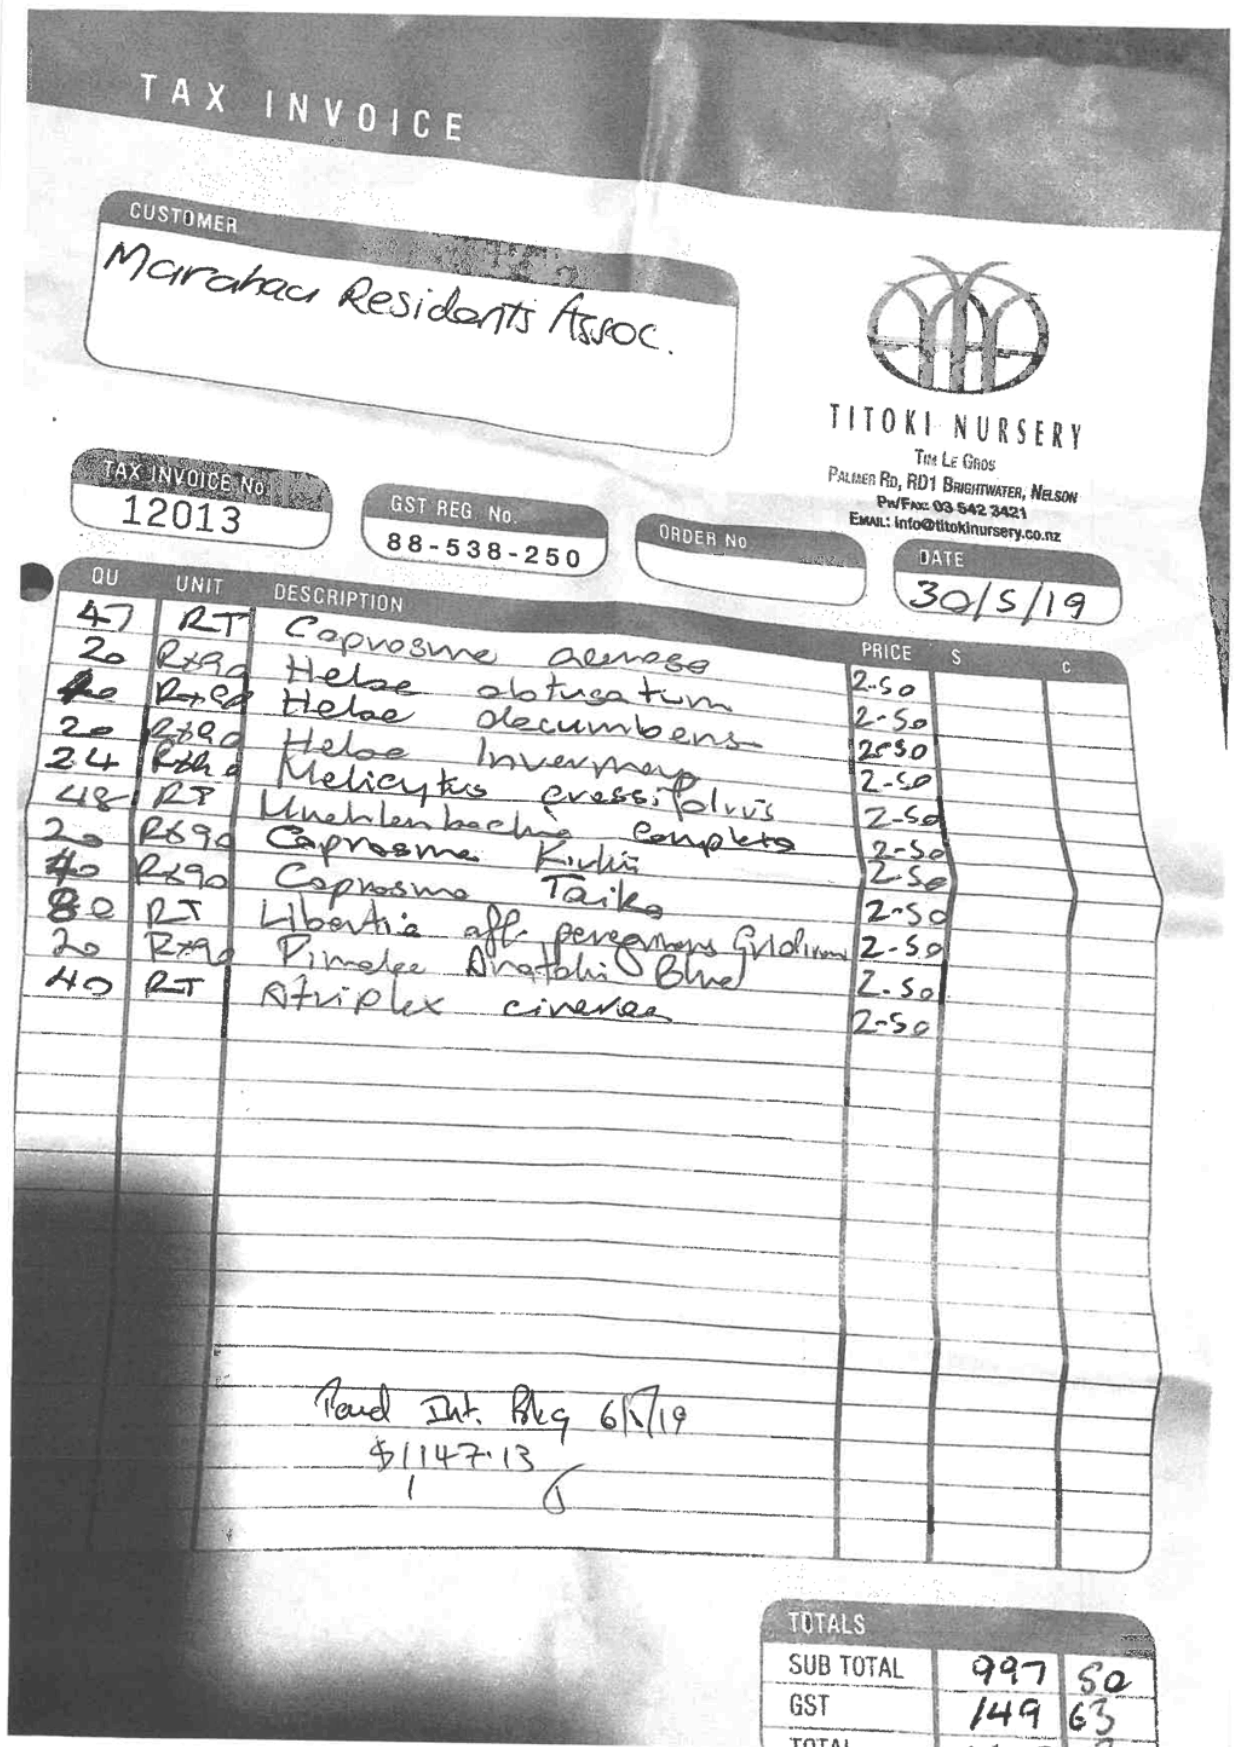 TAX INVOICE
CUSTOMER
Marahau Residents Assoc.
TITOKI NURSERY
TIM LE GROS
PALMER RD, RD1 BRIGHTWATER, NELSON
PH/FAX: 03 542 3421
EMAIL: info@titokinursery.co.nz
TAX INVOICE No.
12013
GST REG. No.
88-538-250
ORDER No
DATE
30/5/19
QU UNIT DESCRIPTION PRICE $ C
47 RT Coprosma acerosa 2-50
20 Rx90 Hebe obtusatum 2-50
Rx90 Hebe decumbens 2-50
20 Rx90 Hebe Invermay 2-50
24 Melicytus crassifolius 2-50
48 RT Muehlenbeckia complexa 2-50
20 Rx90 Coprosma Kiwi 2-50
40 Rx90 Coprosma Taiko 2-50
80 RT Libertia aff. peregrinans 2-50
20 Rx90 Pimelea Blue 2-50
40 RT Atriplex cinerea 2-50
Paid Int. Bkg 6/ /19
$1147.13
TOTALS
SUB TOTAL 997 50
GST 149 63
TOTAL